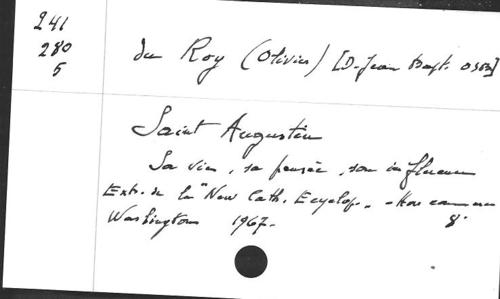 241
280
5
du Roy (Olivier) [D. Jean Bapt. OSB]
Saint Augustin
Sa vie, sa pensée, son influence
Extr. de la "New Cath. Ecyclop. - Hors commerce
Washington 1967. 8°